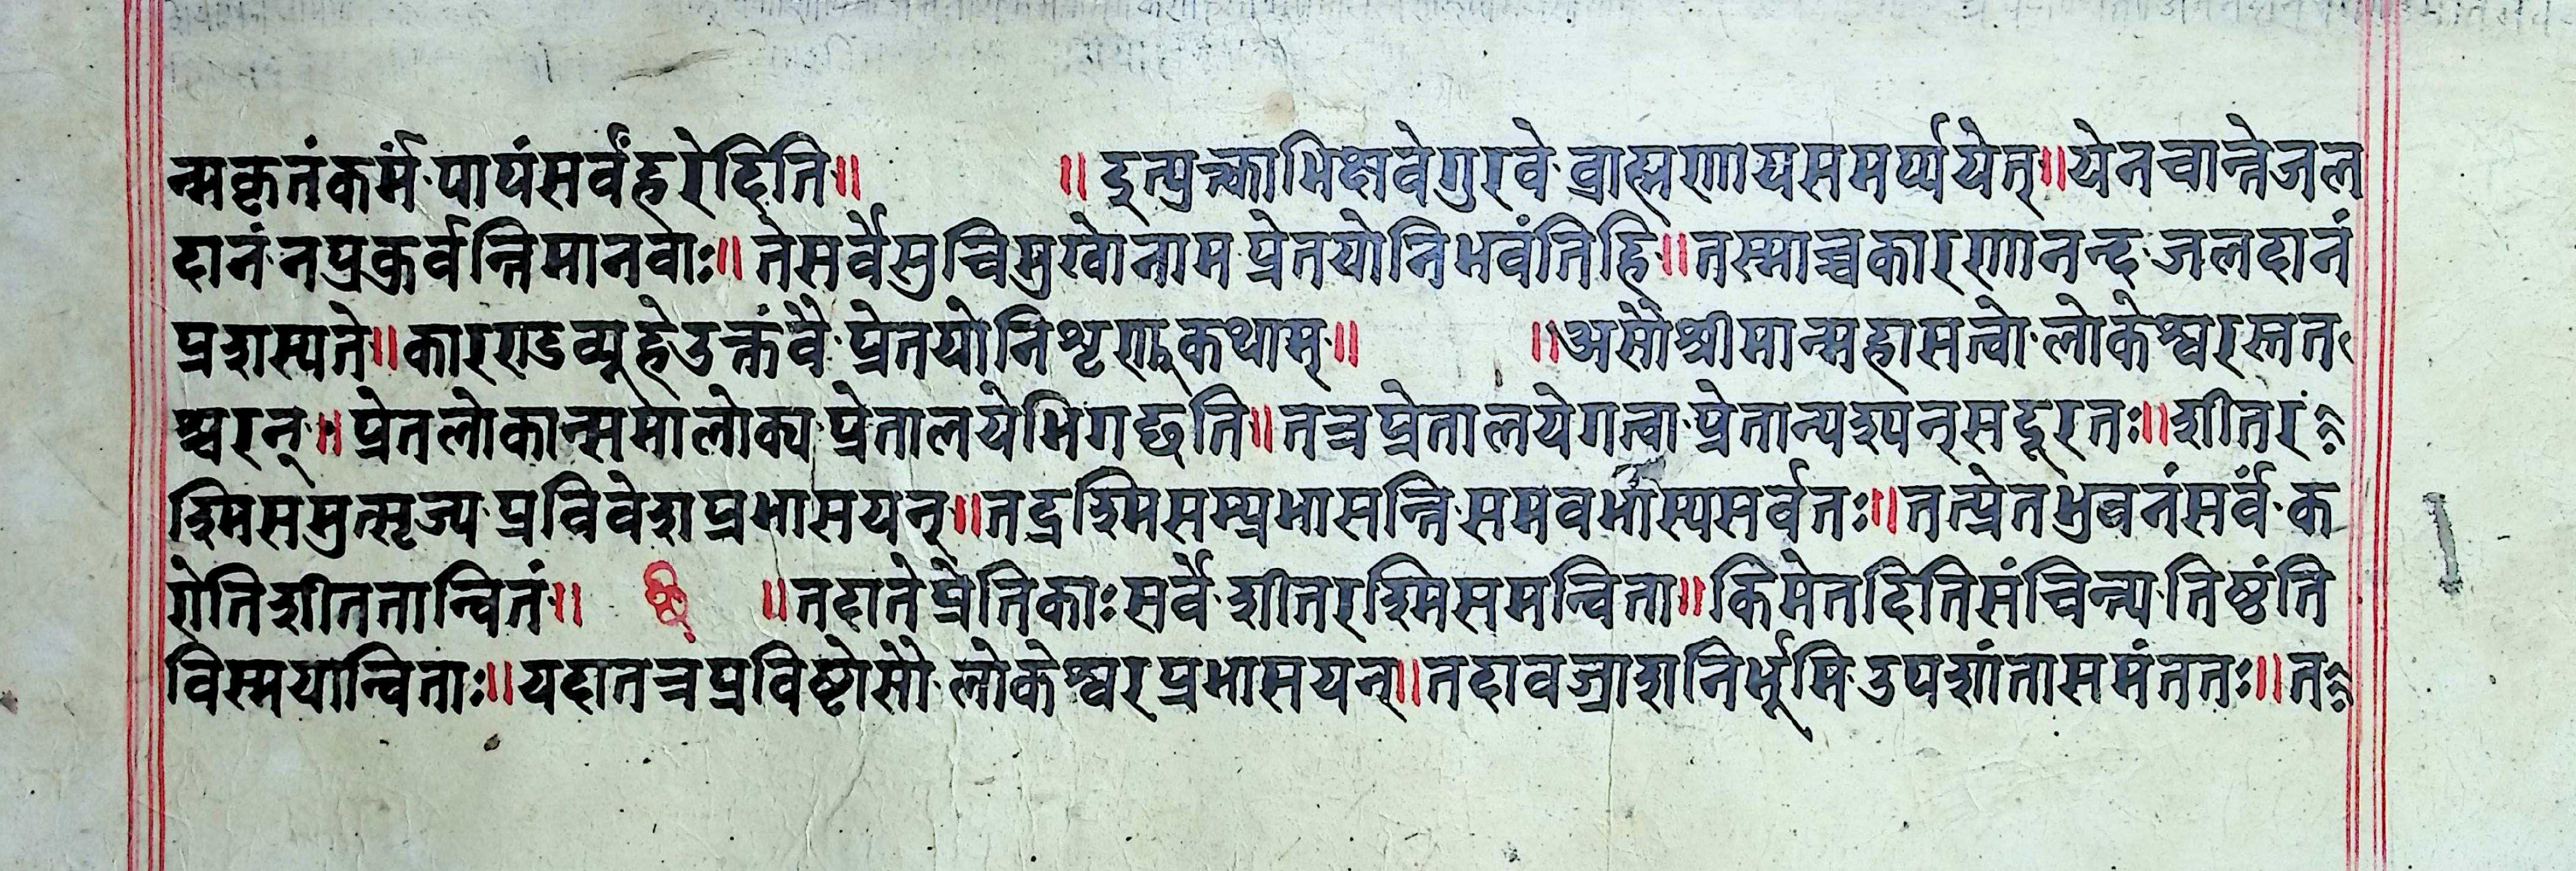 न्मकृतंकर्म·पापंसर्वंहरेदिति॥ ॥इत्पुक्त्काभिक्षवेगुरवे·व्राह्मणायसमर्प्पयेत्॥येनचान्नेजल
दानं·नप्रकुर्वन्तिमानवाः॥तेसर्वेसुचिमुखोनाम·प्रेतयोनिभवंतिहि॥तस्माच्चकारणानन्द·जलदानं
प्रशस्यते॥कारण्डव्यूहेउक्तंवै·प्रेतयोनिशृणुकथाम्॥ ॥असौश्रीमान्महासत्वो·लोकेश्वरस्तत
श्चरन्॥प्रेतलोकान्समालोक्य·प्रेतालयेभिगछति॥तत्रप्रेतालयेगत्वा·प्रेतान्पश्यन्सदूरतः॥शीतर
श्मिसमुत्सृज्य·प्रविवेशप्रभासयन्॥तद्रश्मिसम्प्रभासन्ति·समवभास्यसर्वतः॥तत्प्रेतभुवनंसर्वं·क
रोतिशीततान्वितं॥ ॥तदातेप्रेतिकाःसर्वे·शीतरश्मिसमन्विता॥किमेतदितिसंचिन्त्य·तिष्ठंति
विस्मयान्विताः॥यदातत्रप्रविष्टोसौ·लोकेश्वरप्रभासयन्॥तदावज्राशनिर्भूमि·उपशांतासमंततः॥त